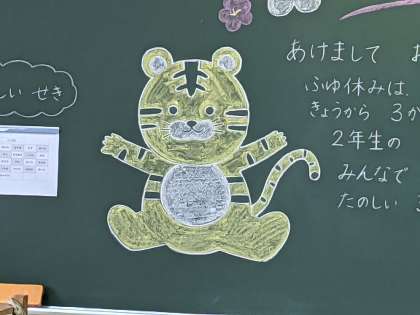 しい せき
あけまして お
ふゆ休みは
きょうから 3か
2年生の
みんなで
たのしい